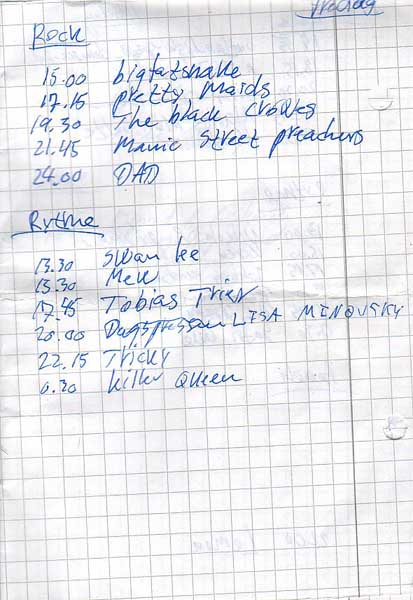 Rock
15.00 bigfatsnake
17.15 pretty Maids
19.30 The black crowes
21.45 Manic Street preachers
24.00 DAD
Rytme
13.30 swan lee
15.30 Mew
17.45 Tobias Trier
20.00 LISA MINOVSKY
22.15 Tricky
0.30 killer Queen